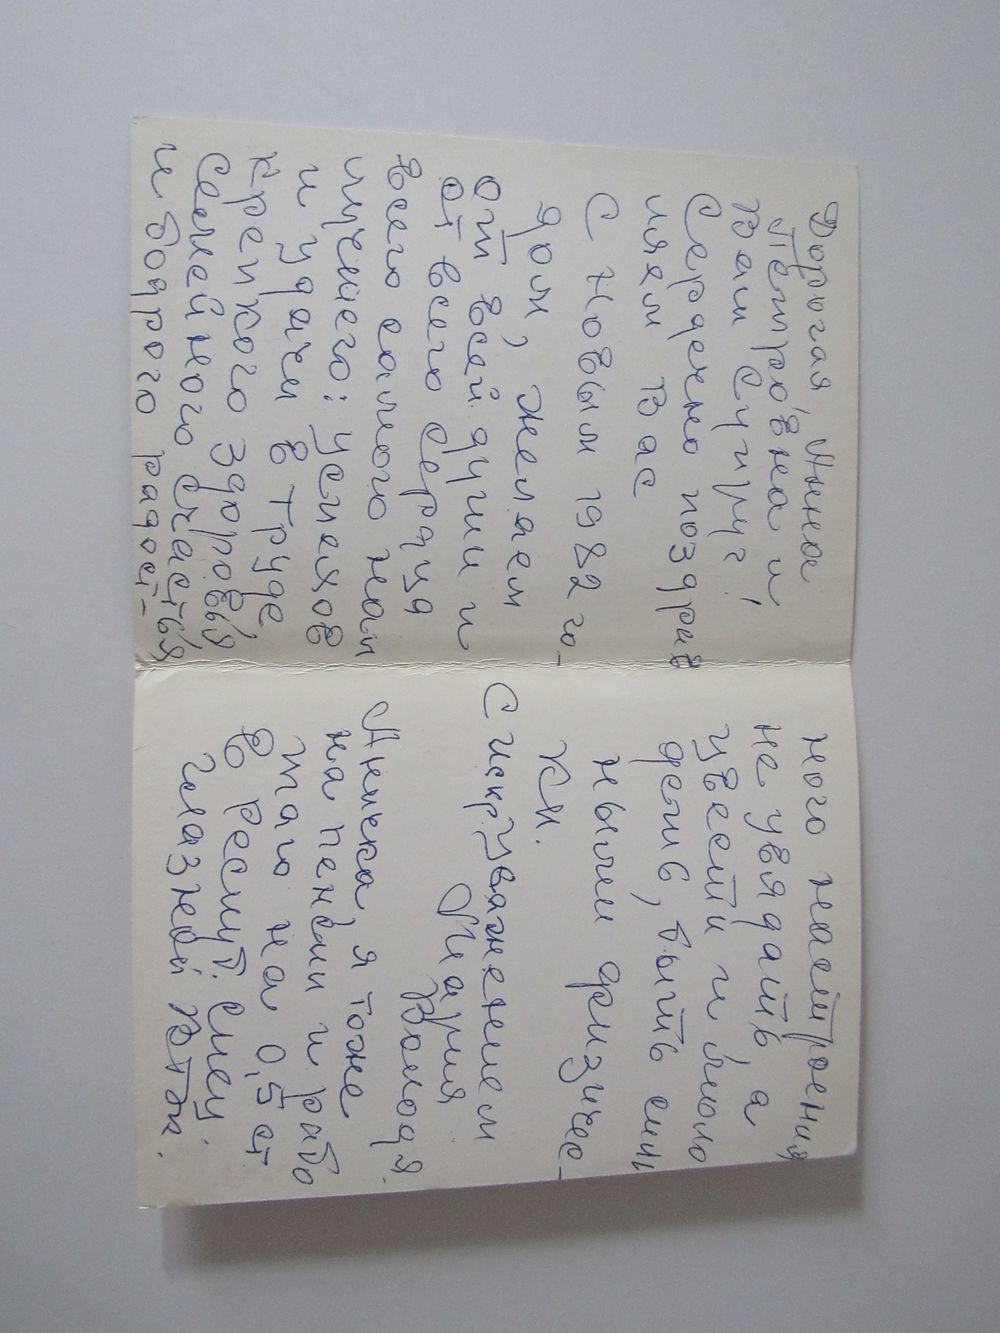 Дорогая Анна
Петровна и
Ваш супруг!
Сердечно поздрав
ляем Вас
С Новым 1982 го-
дом, желаем
от всей души и
от всего сердца
всего самого наи
лучшего: успехов
и удачи в труде
крепкого здоровья
семейного счастья
и бодрого радост-
ного настроения
не увядать, а
цвести и
деть, быть силь
ными физичес-
ки.
С искр. уважением
Мария
Володя.
Анька, я тоже
на пенсии и рабо
таю на 0,5 ст
в респуб.
глазной